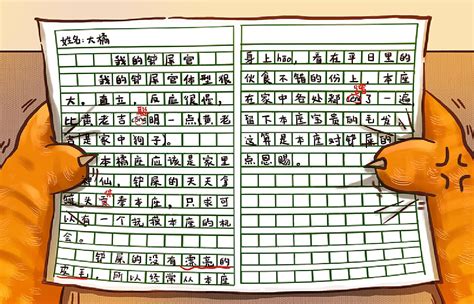 姓名:大橘
我的铲屎官
我的铲屎官体型很
大,直立,反应很慢,
聪
比黄老吉cōng明一点(黄老
吉是家中狗子)。
本橘座应该是家里
神仙,铲屎的天天拿
供
罐头贡养本座,只求可
以有一个抚摸本座的机
会。
铲屎的没有漂亮的
皮毛,所以经常从本座
身上hāo,看在平日里的
伙食不错的份上,本座
蹭
在家中各处都cèng了一遍
留下本座宝贵的毛发
这算是本座对铲屎的一
点恩赐。